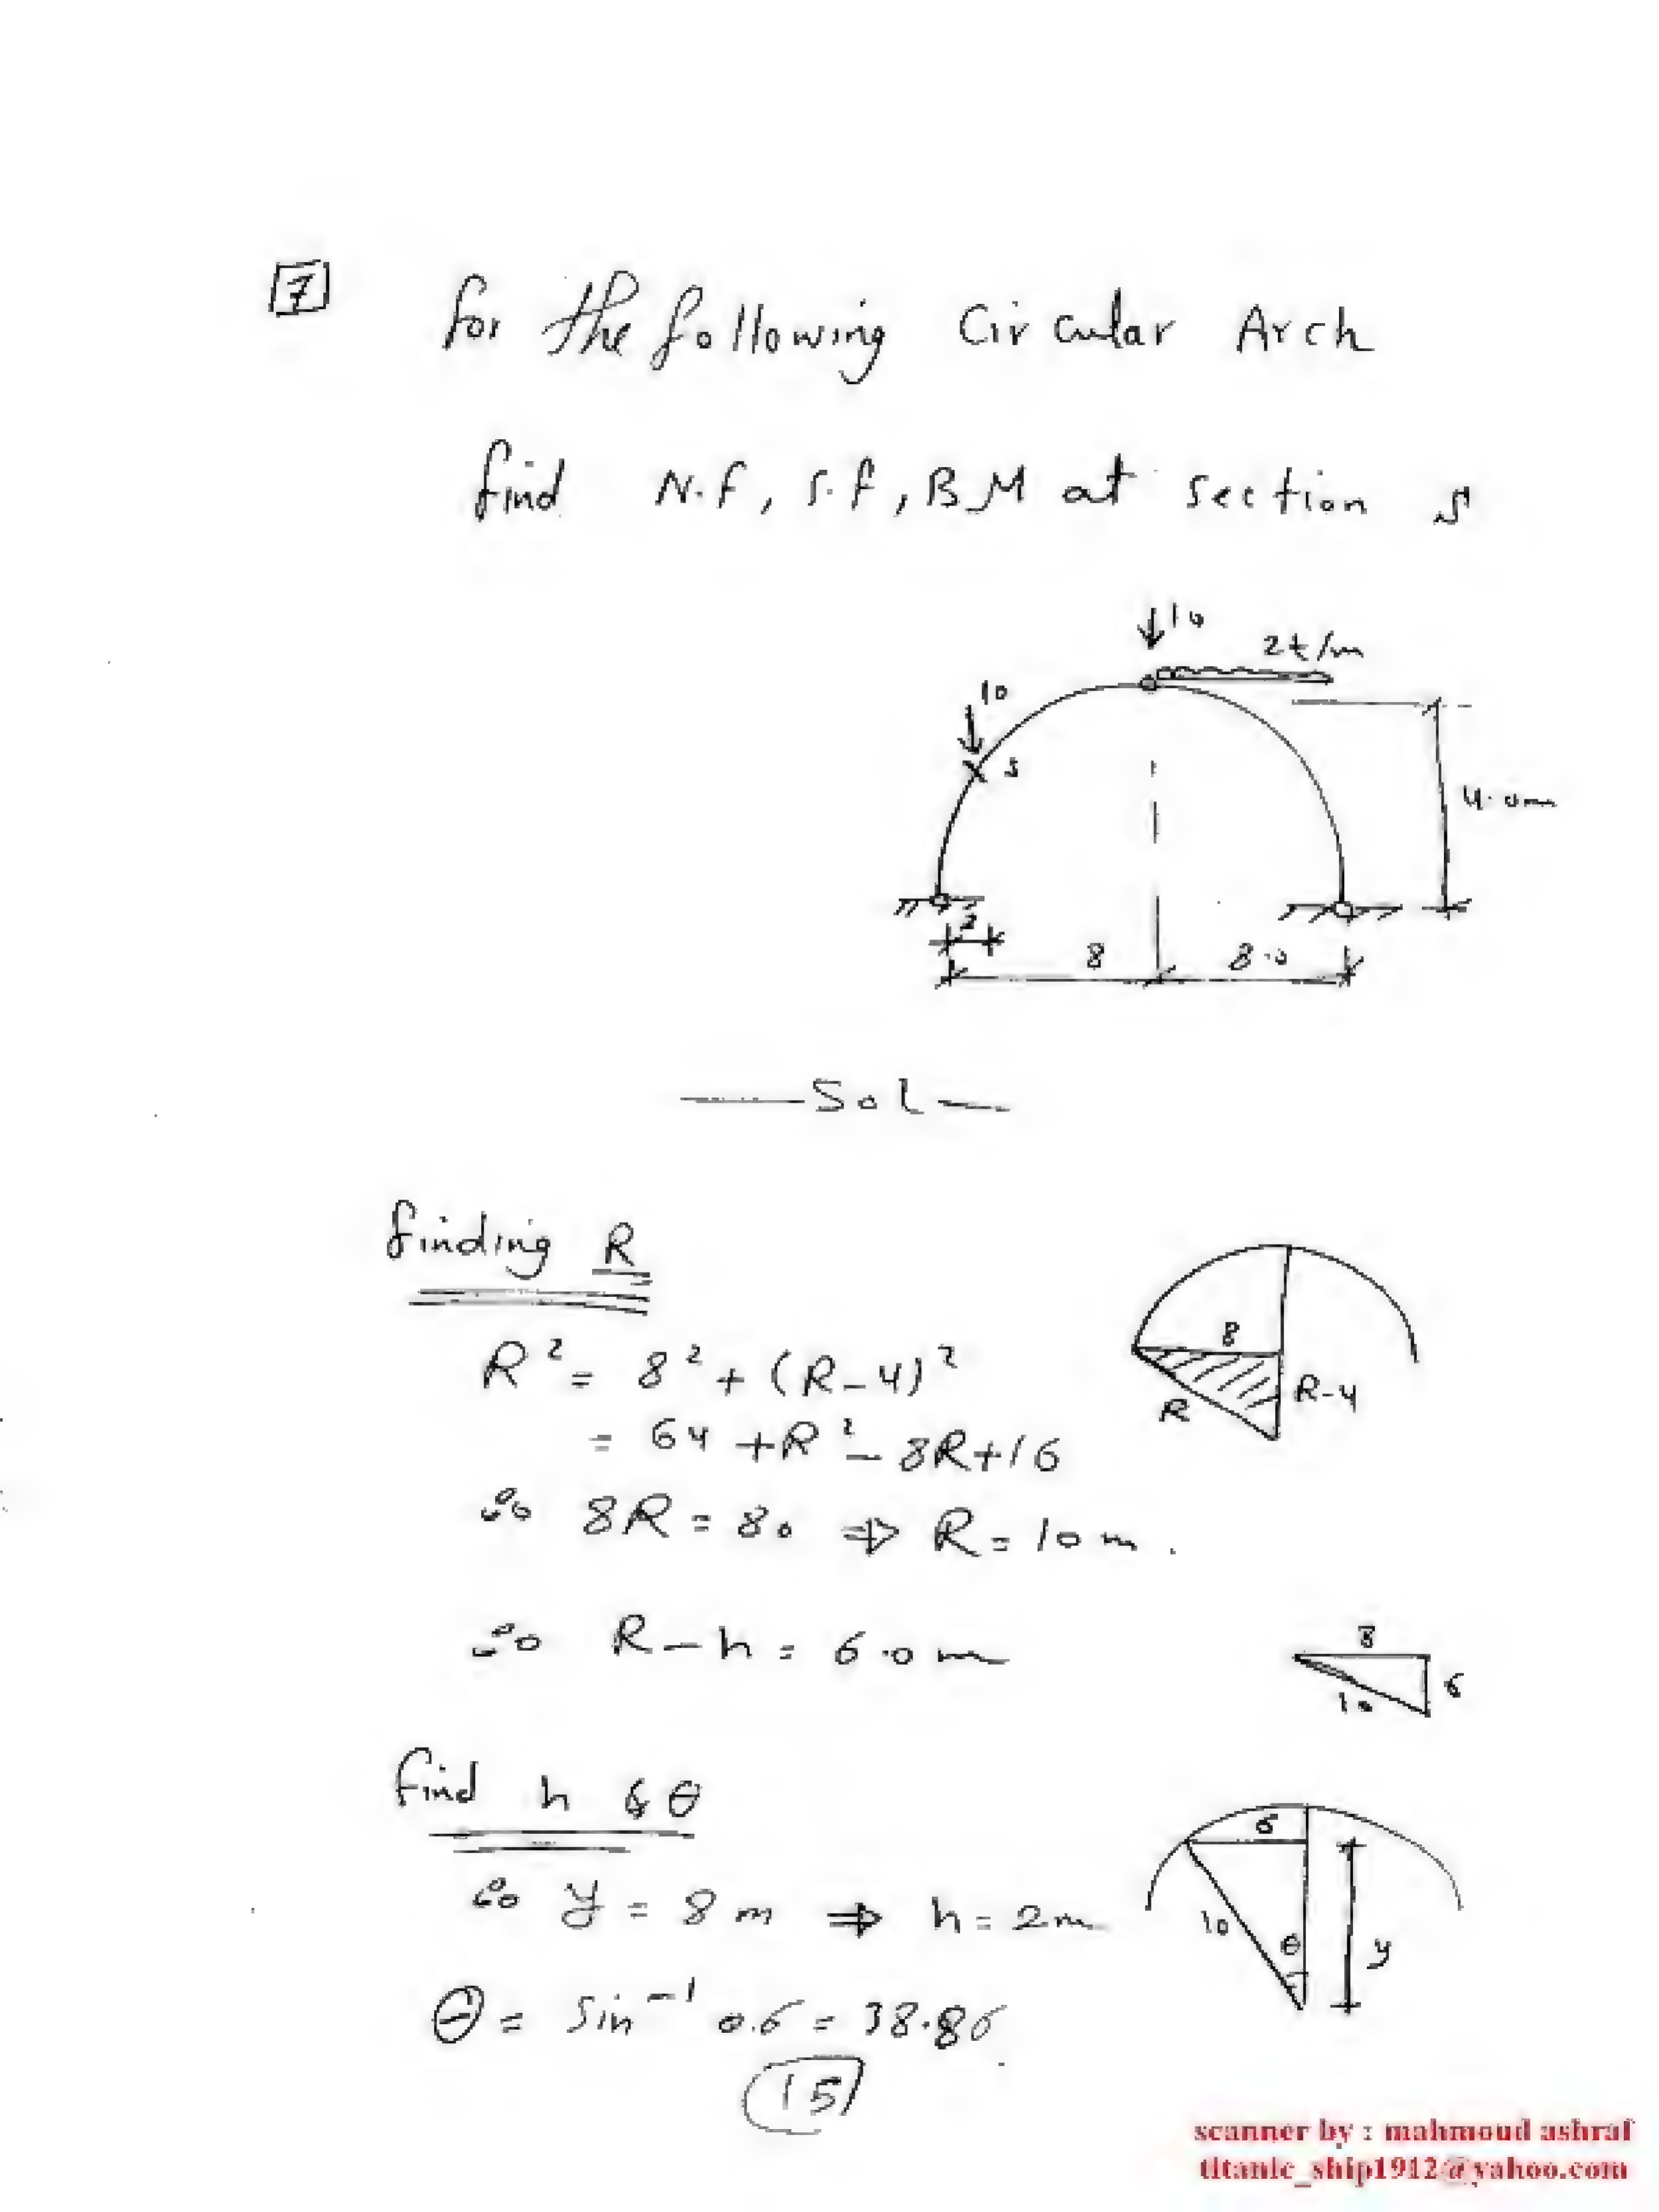 7
for the following Circular Arch
find N.f, S.f, B.M at section S
10
2t/m
10
S
4.0m
2
8
8.0
Sol
finding R
R² = 8² + (R-4)²
= 64 + R² - 8R + 16
∴ 8R = 80 ⇒ R = 10 m.
8
R
R-4
∴ R - h = 6.0 m
8
6
10
find h & θ
∴ y = 8 m ⇒ h = 2m
6
10
θ
y
θ = Sin⁻¹ 0.6 = 38.86
15
scanner by : mahmoud ashraf
titanic_ship1912@yahoo.com